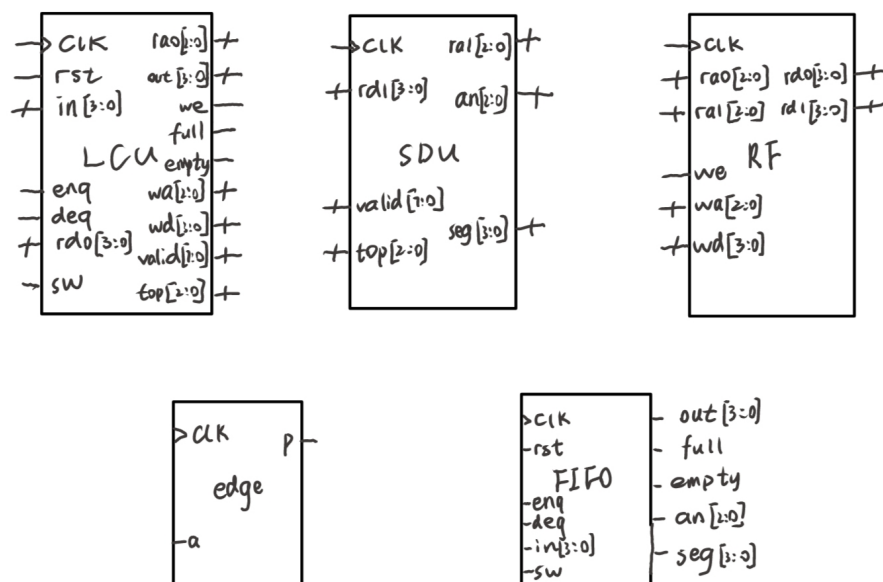 CLK
rst
in[3:0]
LCU
enq
deq
rd0[3:0]
sw
ra0[2:0]
out[3:0]
we
full
empty
wa[2:0]
wd[3:0]
valid[7:0]
top[2:0]
CLK
rd1[3:0]
SDU
valid[7:0]
top[2:0]
ra1[2:0]
an[2:0]
seg[3:0]
CLK
ra0[2:0] rd0[3:0]
ra1[2:0] rd1[3:0]
RF
we
wa[2:0]
wd[3:0]
CLK
P
edge
a
CLK
rst
FIFO
enq
deq
in[3:0]
sw
out[3:0]
full
empty
an[2:0]
seg[3:0]